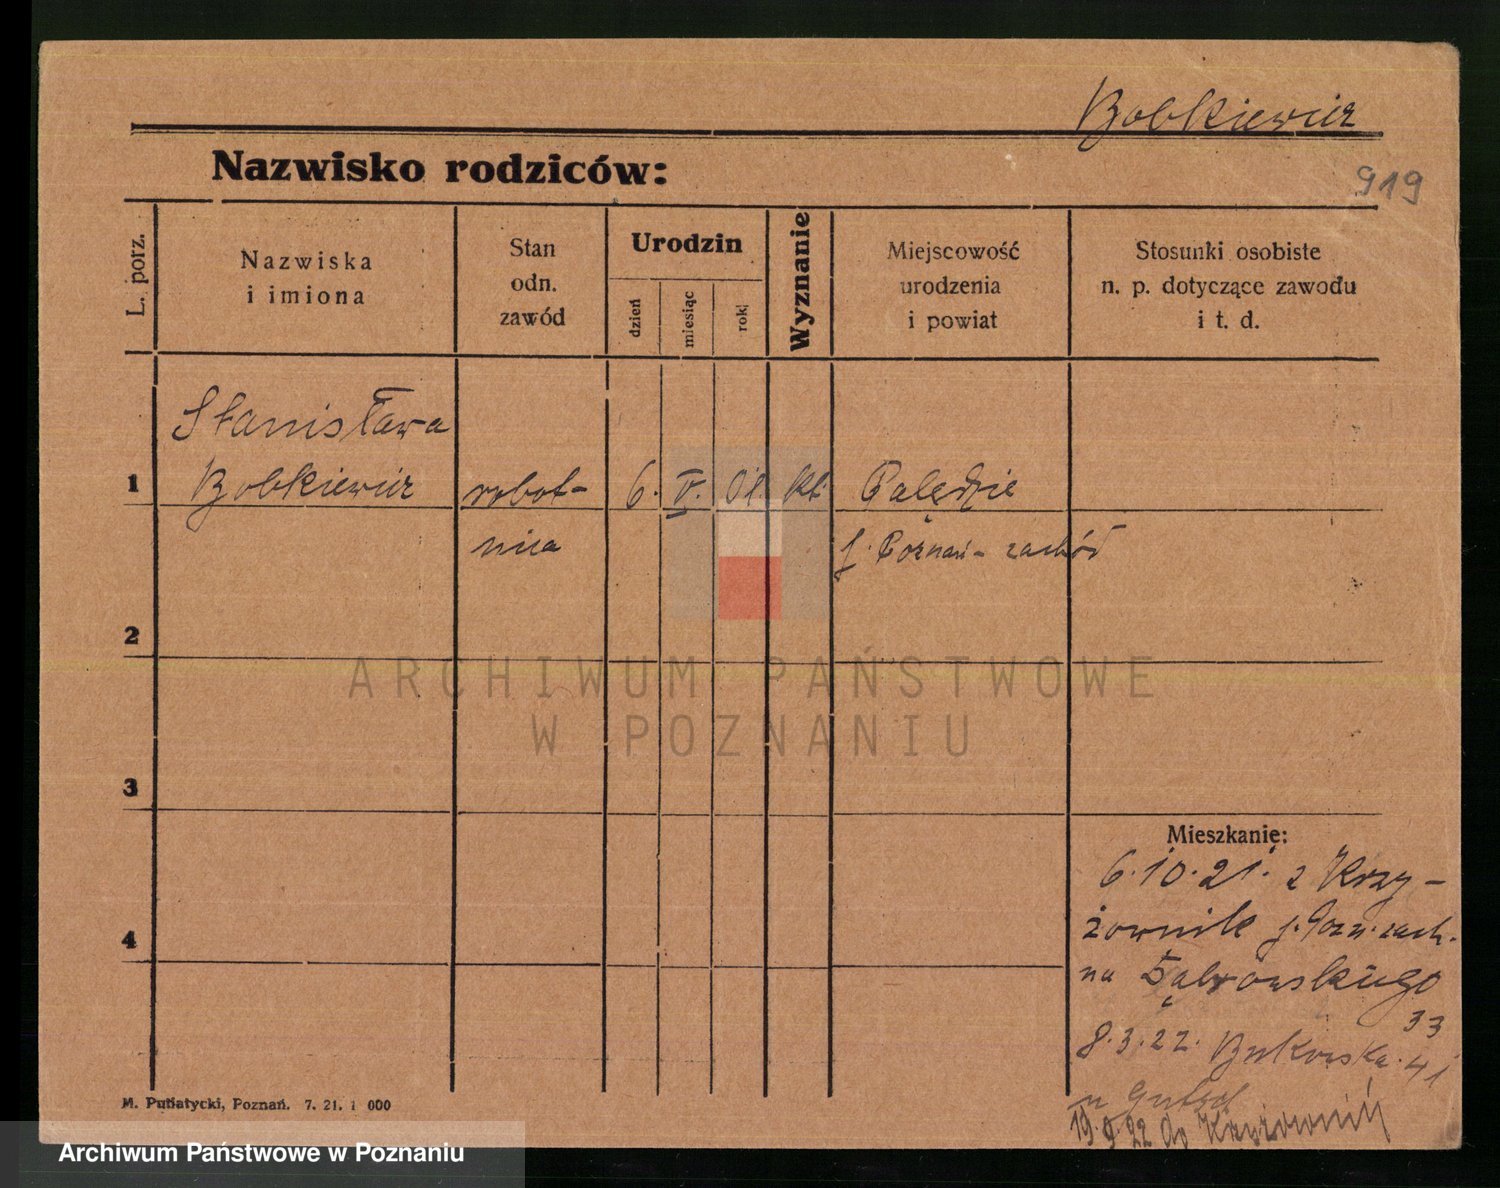 Bobkiewicz
Nazwisko rodziców:
919
L. porz.
Nazwiska
i imiona
Stan
odn.
zawód
Urodzin
dzień
miesiąc
rok
Wyznanie
Miejscowość
urodzenia
i powiat
Stosunki osobiste
n. p. dotyczące zawodu
i t. d.
Stanisława
1 Bobkiewicz robot- 6. V. 01. kt. Palędzie
nica p. Poznań-zachód
2
3
4
Mieszkanie:
6.10.21. z Krzy-
żownik p. Pozn. zach.
na Dąbrowskiego
33
8.3.22. Bukowska 41
19.9.22 do Krzyżownik
M. Putiatycki, Poznań. 7. 21. 1 000
ARCHIWUM PAŃSTWOWE
W POZNANIU
Archiwum Państwowe w Poznaniu